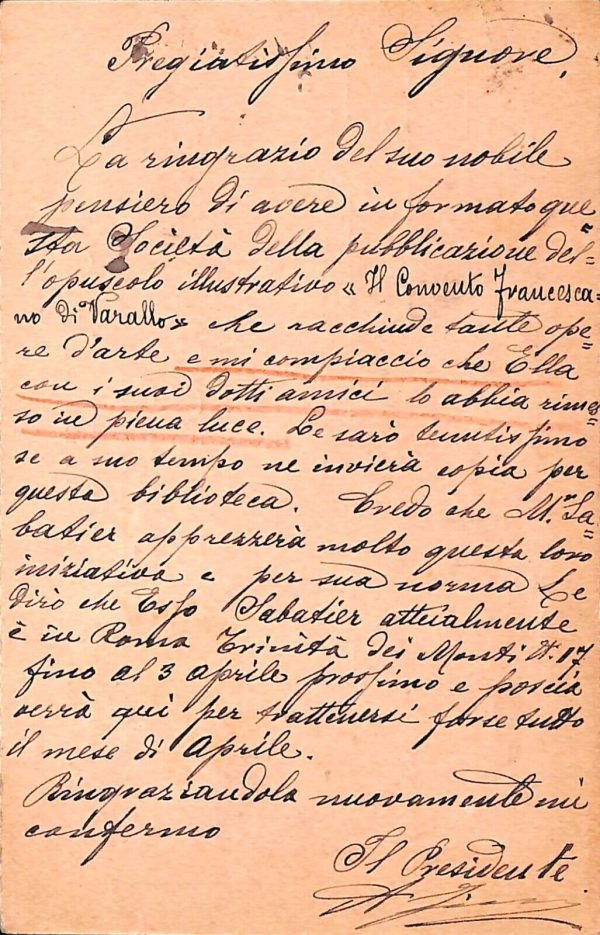 Pregiatissimo Signore,
La ringrazio del suo nobile
pensiero di avere informato que=
sta Società della pubblicazione del=
l'opuscolo illustrativo « Il Convento Francesca=
no di Varallo» che racchiude tante ope=
re d'arte e mi compiaccio che Ella
con i suoi dotti amici lo abbia rimes=
so in piena luce. Le sarò tenutissimo
se a suo tempo ne invierà copia per
questa biblioteca. Credo che M.r Sa=
batier apprezzerà molto questa loro
iniziativa e per sua norma Le
dirò che Esso Sabatier attualmente
è in Roma Trinità dei Monti N. 17
fino al 3 aprile prossimo e poscia
verrà qui per trattenersi forse tutto
il mese di aprile.
Ringraziandola nuovamente mi
confermo
Il Presidente